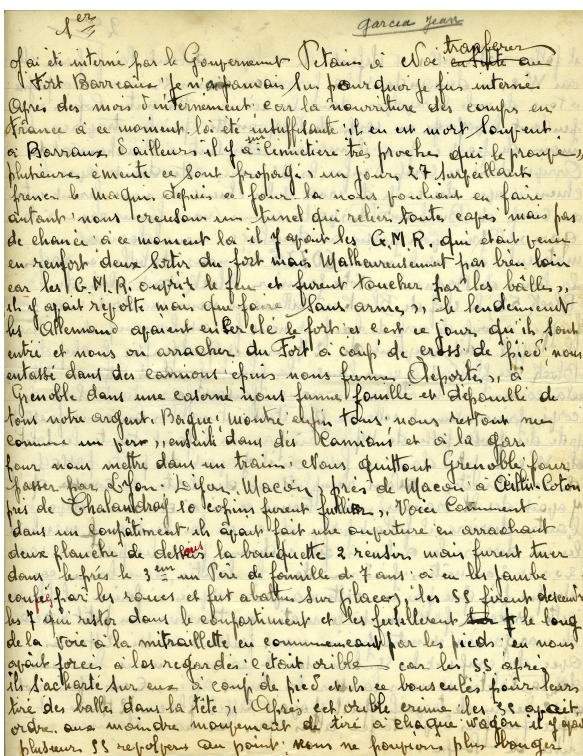 1er
Garcia Jean
J'ai été interné par le Gouvernement Petain à Noé tranferer
en suite au
Fort Barreaux; Je n'ai jamais su pourquoi je fus interné
Après des mois d'internement car la nourriture des camps en
France à ce moment là été insuffisante; il en est mort souvent
à Barraux d'ailleurs il y a Cimetière très proches qui le prouve,
plusieurs émeute ce sont propagé, un jour 27 surveillants
prenez le maquis, depuis ce jour la nous voulions en faire
autant; nous creusons un tunel qui relier toutes caves mais pas
de chance à ce moment la il y avait les G.M.R. qui était venu
en renfort deux sortir du fort mais Malheureusement pas bien loin
car les G.M.R. ouvrir le feu et furent toucher par les bâlles,,
il y avait révolte mais que faire sans armes,, le lendement
les Allemand avaient encerclé le fort et c'est ce jour, qu'ils sont
entré et nous on arracher du Fort à coup de cross de pied nous
entassé dans des camions puis nous fumes Déporté,, à
Grenoble dans une caserne nous fume fouillé et dépouillé de
tous notre argent. Bague, montre enfin tous, nous restont nu
comme un ver,, ensuite dans des Camions et à la gare
pour nous mettre dans un train. Nous quittont Grenoble pour
passer par Lyon. Dijon. Macon, près de Macon à
près de 10 copins furent fusiller,, Voici Comment
dans un conpâtiment ils ayant fait une ouverture en arrachant
deux planche de dessous la banquette 2 mais furent tuer
dans le près le 3em un Père de famille de 7 ans; à eu les jambe
coupés par les roues et fut abattu sur place, les SS firent descendre
les 7 qui rester dans le compartiment et les fusillerent le long
de la voie à la mitraillette en commencent par les pieds en nous
ayant forcés à les regardes; c'était orible car les SS après
ils s'acharté sur eux à coup de pied et ils ce bousculés pour leurs
tiré des balles dans la tête,, Après cet orible crime les SS avait
ordre au moindre mouvement de tiré à chaque wagon il y avait
plusieurs SS revolvers au point; nous ne pouvons plus bouger